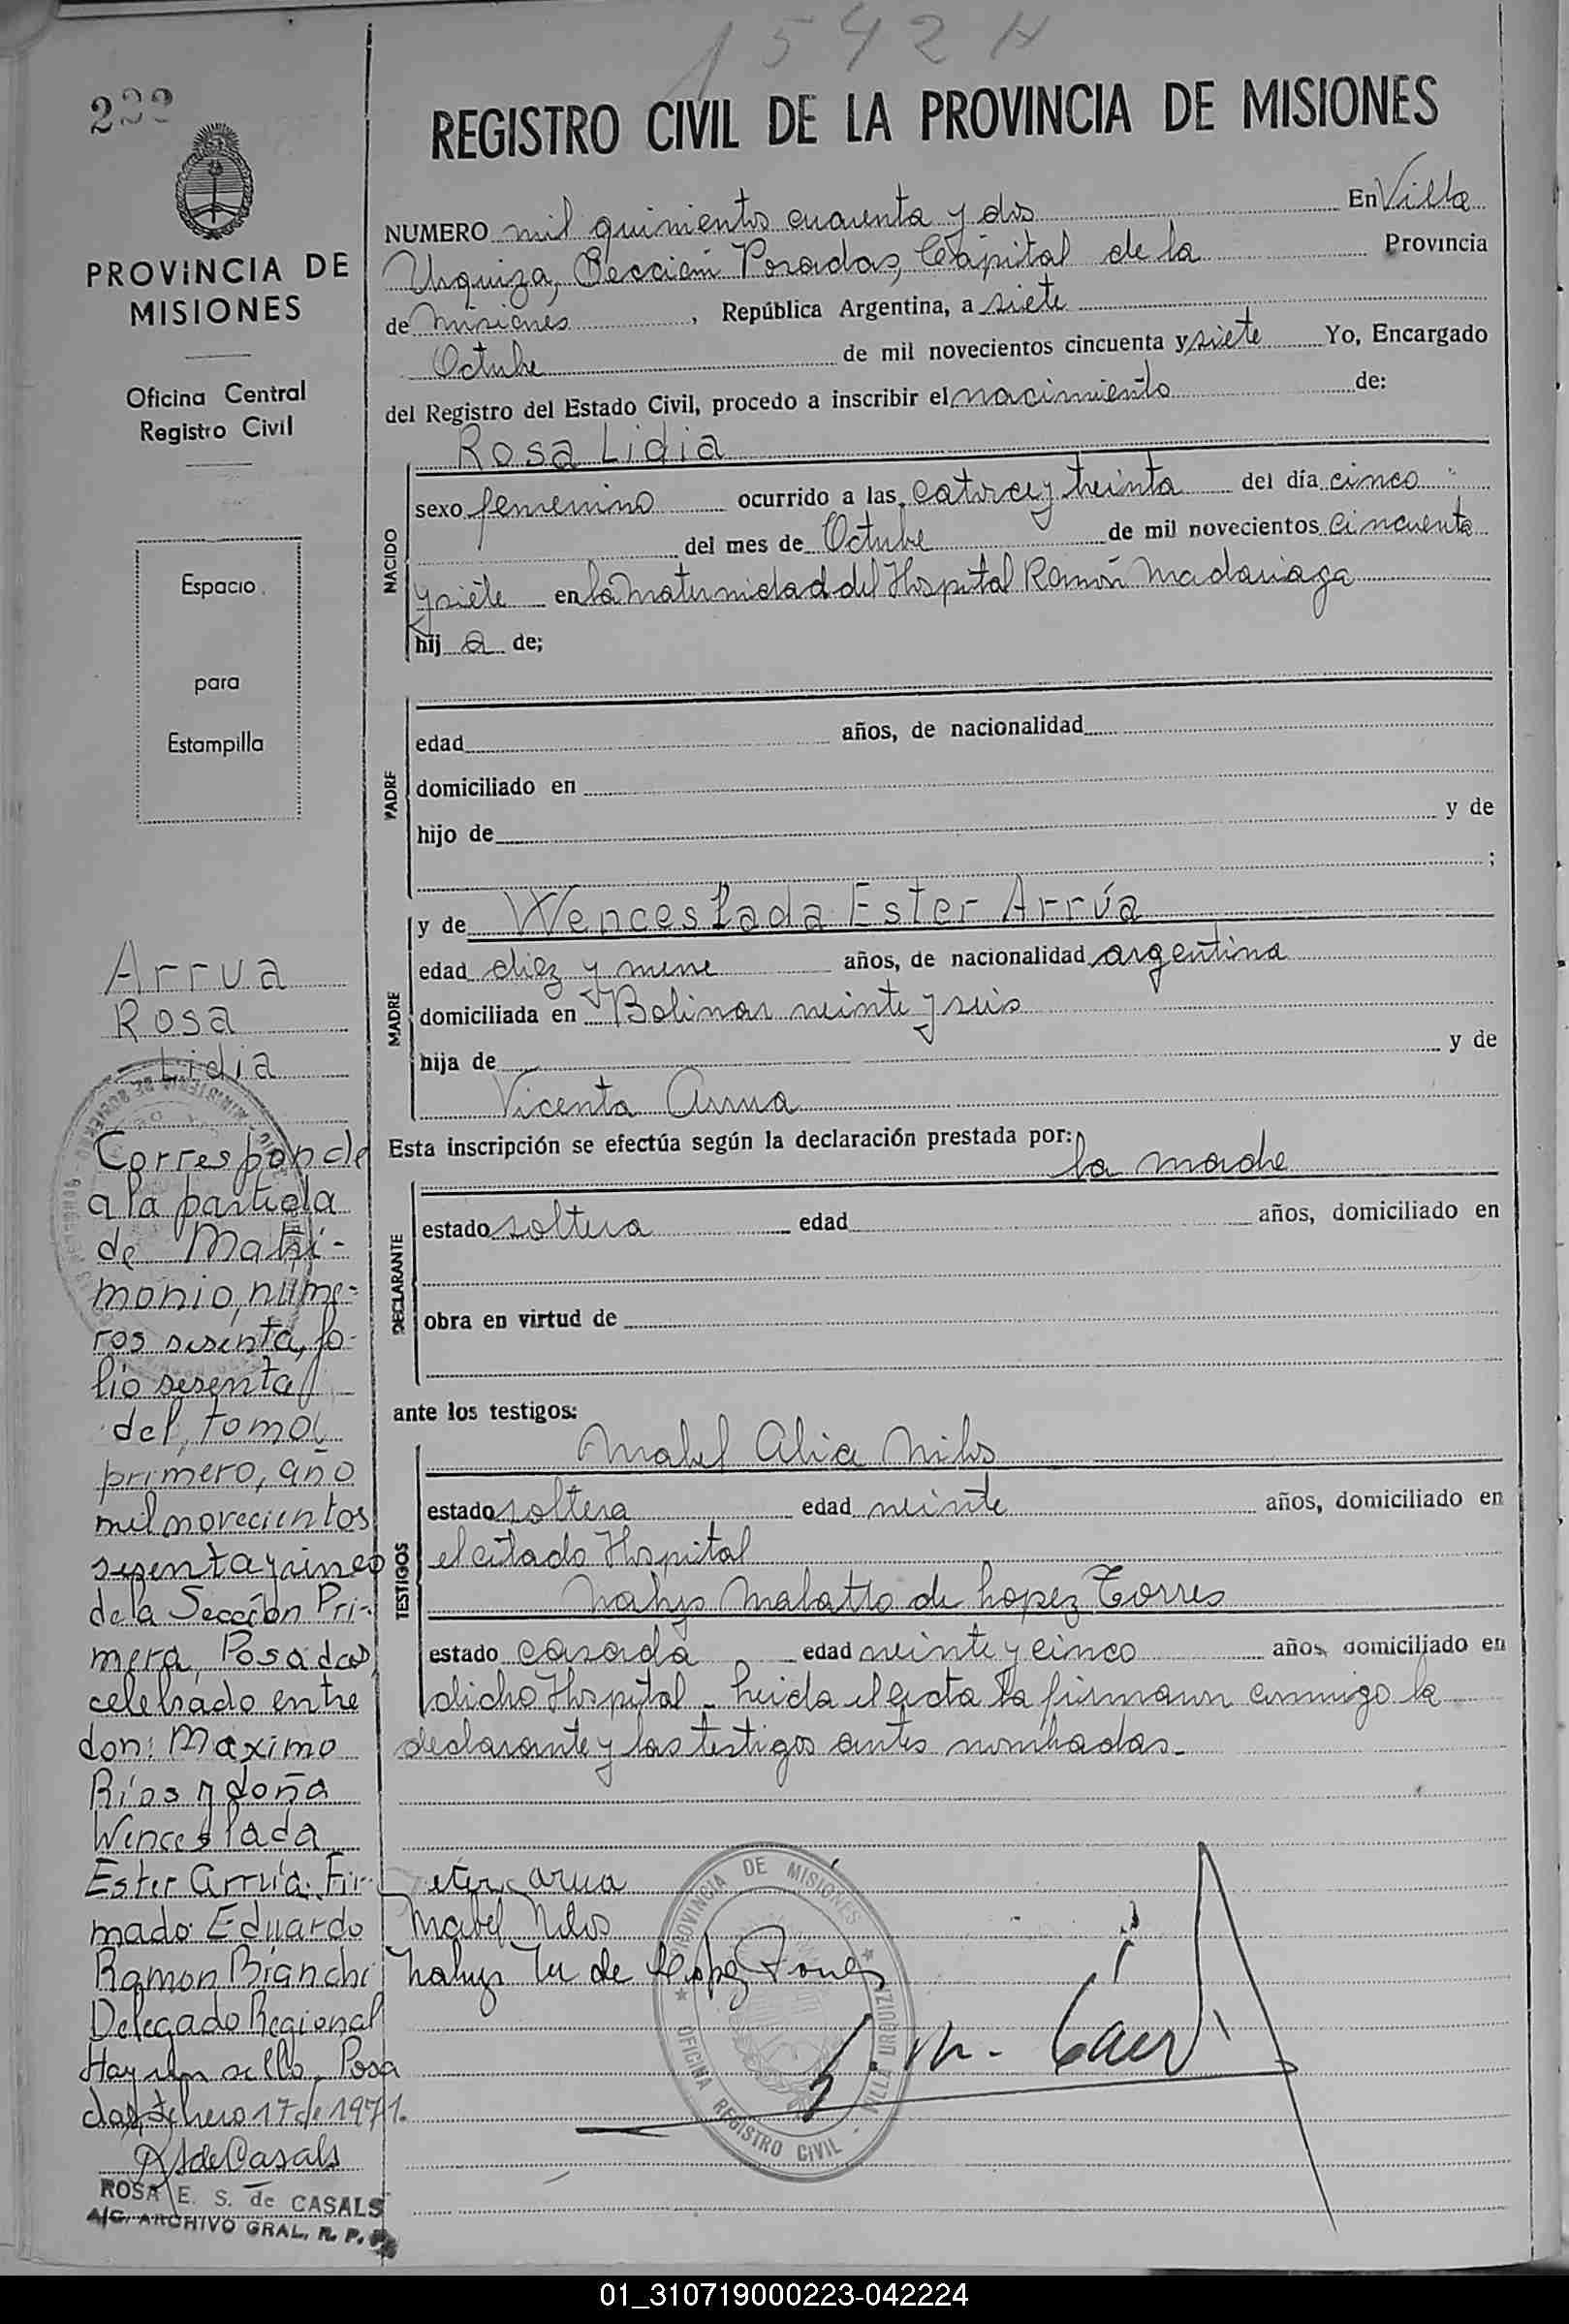 1542 H
REGISTRO CIVIL DE LA PROVINCIA DE MISIONES
PROVINCIA DE
MISIONES
Oficina Central
Registro Civil
Espacio
para
Estampilla
NUMERO mil quinientos cuarenta y dos En Villa
Urquiza, Sección Posadas, Capital de la Provincia
de Misiones, República Argentina, a siete
Octubre de mil novecientos cincuenta y siete Yo, Encargado
del Registro del Estado Civil, procedo a inscribir el nacimiento de:
Rosa Lidia
NACIDO
sexo femenino ocurrido a las catorce y treinta del día cinco
del mes de Octubre de mil novecientos cincuenta
y siete en la Maternidad del Hospital Ramón Madariaga
hij a de;
PADRE
edad años, de nacionalidad
domiciliado en
hijo de y de
;
MADRE
y de Wenceslada Ester Arrúa
edad diez y nueve años, de nacionalidad argentina
domiciliada en Bolivar veinte y seis
hija de y de
Vicenta Arrua
Esta inscripción se efectúa según la declaración prestada por:
la madre
DECLARANTE
estado soltera edad años, domiciliado en
obra en virtud de
ante los testigos:
TESTIGOS
Mabel Alicia Nilos
estado soltera edad veinte años, domiciliado en
el citado Hospital
Nahyr Malatto de Lopez Torres
estado casada edad veinte y cinco años, domiciliado en
dicho Hospital - Leida el acta la firmaron conmigo la
declarante y las testigos antes nombradas.-
ester arua
Mabel Nilos
Nahyr M de López Torres
PROVINCIA DE MISIONES
OFICINA REGISTRO CIVIL - VILLA URQUIZA
Arrua
Rosa
Lidia
Corresponde
a la partida
de Matri-
monio, núme-
ros sesenta, fo-
lio sesenta
del, tomo
primero, año
mil novecientos
sesenta y cinco
de la Sección Pri-
mera, Posadas,
celebrado entre
don: Maximo
Ríos y doña
Wenceslada
Ester Arrúa. Fir-
mado: Eduardo
Ramon Bianchi
Delegado Regional
Hay un sello. Posa
das, febrero 17 de 1971.
RSdeCasals
ROSA E. S. de CASALS
A/C. ARCHIVO GRAL. R. P.
01_310719000223-042224